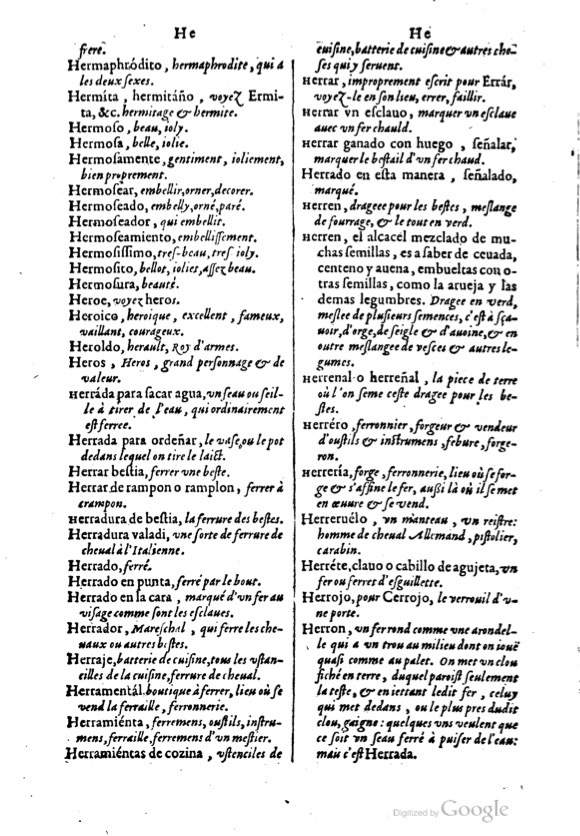 He
frere.
Hermaphródito, hermaphrodite, qui a
les deux sexes.
Hermíta, hermitáño, voyez Ermi-
ta, &c. hermitage & hermite.
Hermoſo, beau, ioly.
Hermoſa, belle, iolie.
Hermoſamente, gentiment, ioliement,
bien proprement.
Hermoſear, embellir, orner, decorer.
Hermoſeado, embelly, orné, paré.
Hermoſeador, qui embellit.
Hermoſeamiento, embelliſſement.
Hermoſiſſimo, tres-beau, tres ioly.
Hermoſito, bellot, ioliet, aſſez beau.
Hermoſura, beauté.
Heroe, voyez heros.
Heroico, heroique, excellent, fameux,
vaillant, courageux.
Heroldo, herault, Roy d'armes.
Heros, Heros, grand perſonnage & de
valeur.
Herráda para ſacar agua, vn ſeau ou ſeil-
le à tirer de l'eau, qui ordinairement
eſt ferree.
Herrada para ordeñar, le vaſe, ou le pot
dedans lequel on tire le laict.
Herrar beſtia, ferrer vne beſte.
Herrar de rampon o ramplon, ferrer à
crampon.
Herradura de beſtia, la ferrure des beſtes.
Herradura valadi, vne ſorte de ferrure de
cheual à l'Italienne.
Herrado, ferré.
Herrado en punta, ferré par le bout.
Herrado en la cara, marqué d'vn fer au
viſage comme ſont les eſclaues.
Herrador, Mareſchal, qui ferre les che-
uaux ou autres beſtes.
Herraje, batterie de cuiſine, tous les vſtan-
cilles de la cuiſine, ferrure de cheual.
Herramentál. boutique à ferrer, lieu où ſe
vend la ferraille, ferronnerie.
Herramiénta, ferremens, ouſtils, inſtru-
mens, ferraille, ferremens d'vn meſtier.
Herramiéntas de cozina, vſtenciles de
He
cuiſine, batterie de cuiſine & autres cho-
ſes qui y ſeruent.
Herrar, improprement eſcrit pour Errár,
voyez-le en ſon lieu, errer, faillir.
Herrar vn eſclauo, marquer vn eſclaue
auec vn fer chauld.
Herrar ganado con huego, ſeñalar,
marquer le beſtail d'vn fer chaud.
Herrado en eſta manera, ſeñalado,
marqué.
Herren, drageee pour les beſtes, meſlange
de fourrage, & le tout en verd.
Herren, el alcacél mezclado de mu-
chas ſemillas, es a ſaber de ceuada,
centeno y auena, embueltas con o-
tras ſemillas, como la arueja y las
demas legumbres. Dragee en verd,
meſlee de pluſieurs ſemences, c'eſt à ſça-
uoir, d'orge, de ſeigle & d'auoine, & en
outre meſlangee de veſces & autres le-
gumes.
Herrenal o herreñal, la piece de terre
où l'on ſeme ceſte dragee pour les be-
ſtes.
Herréro, ferronnier, forgeur & vendeur
d'ouſtils & inſtrumens, febure, forge-
ron.
Herrería, forge, ferronnerie, lieu où ſe for-
ge & s'affine le fer, auſſi là où il ſe met
en œuure & ſe vend.
Herreruélo, vn manteau, vn reiſtre:
homme de cheual Allemand, piſtolier,
carabin.
Herréte, clauo o cabillo de agujeta, vn
fer ou ferret d'eſguillette.
Herrojo, pour Cerrojo, le verrouil d'v-
ne porte.
Herron, vn fer rond comme vne arondel-
le qui a vn trou au milieu dont on iouë
quaſi comme au palet. On met vn clou
fiché en terre, duquel paroiſt ſeulement
la teſte, & en iettant ledit fer, celuy
qui met dedans, ou le plus pres dudit
clou, gaigne: quelques vns veulent que
ce ſoit vn ſeau ferré à puiſer de l'eau:
mais c'eſt Herrada.
Digitized by Google